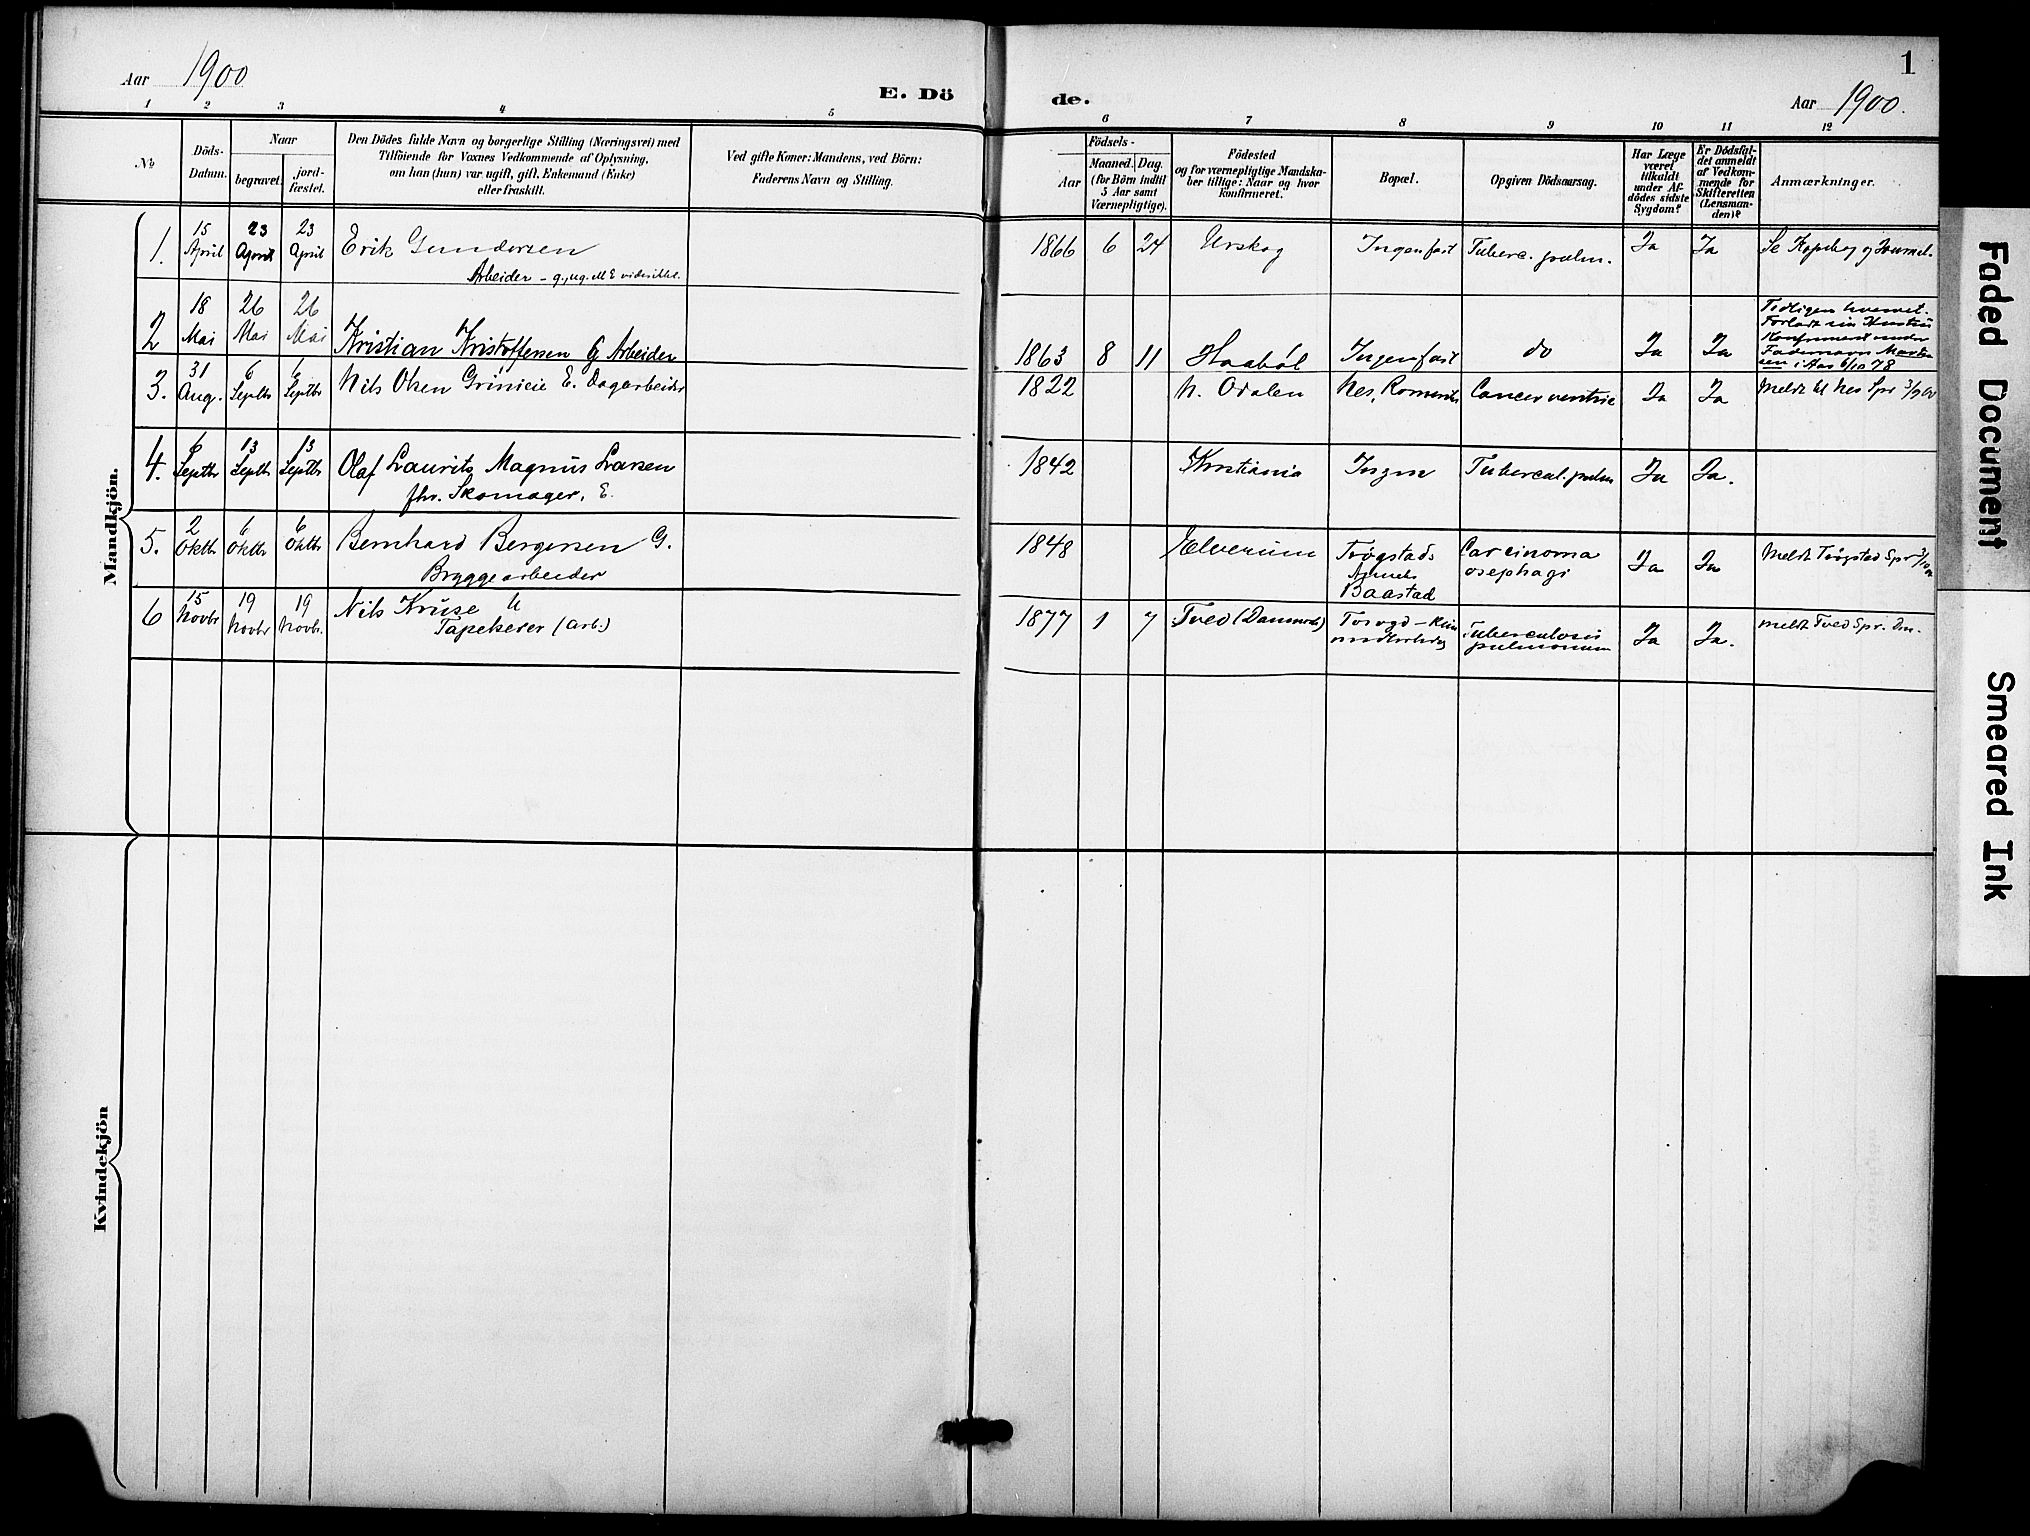 Aar 1900
E. Dö
de.
Aar 1900.
1
1 2 3 4 5 6 7 8 9 10 11 12
No
Döds-
Datum.
Naar
begravet.
jord-
fæstet.
Den Dödes fulde Navn og borgerlige Stilling (Næringsvei) med
Tilföiende for Voxnes Vedkommende af Oplysning,
om han (hun) var ugift, gift, Enkemand (Enke)
eller fraskilt.
Ved gifte Koner: Mandens, ved Börn:
Faderens Navn og Stilling.
Födsels-
Aar
Maaned. Dag.
(for Börn indtil
5 Aar samt
Værnepligtige).
Födested
og for værnepligtige Mandska-
ber tillige: Naar og hvor
konfirmeret.
Bopæl.
Opgiven Dödsaarsag.
Har Læge
været
tilkaldt
under Af-
dödes sidste
Sygdom?
Er Dödsfal-
det anmeldt
af Vedkom-
mende for
Skifteretten
(Lensman-
den)?
Anmærkninger.
Mandkjön.
1. 15 April 23 April 23 April Erik Gundersen
Arbeider
1866 6 24 Urskog Ingen fast Tuberc. pulm. Ja Ja Se Kopibog og Journal.
2 18 Mai 26 Mai 26 Mai Kristian Kristoffersen G Arbeider
1863 8 11 Haabøl Ingen fast do Ja Ja
Forladt sin Hustru
Konfirmeret under
i Aas 6/10 78
3. 31 Aug. 6 Septbr 6 Septbr Nils Olsen E. Dagarbeider
1822 N. Odalen Nes, Romerike Cancer ventric Ja Ja Meldt til Nes Spr
4. 6 Septbr 13 Septbr 13 Septbr Olaf Laurits Magnus Larsen
fhv. Skomager, E.
1842 Kristiania Ingen Tubercul. pulm Ja Ja.
5. 2 Oktbr 6 Oktbr 6 Oktbr Bernhard Bergersen G.
Bryggearbeider
1848 Elverum Trøgstads
Baastad
Carcinoma
osephagi
Ja Ja Meldt Trøgstad Spr
6 15 Novbr 19 Novbr 19 Novbr. Nils Kruse U
Tapetserer (Arb.)
1877 1 7 Tved (Danmark)
Tuberculosis
pulmonum
Ja Ja. meldt Tved Spr. Dm.
Kvindekjön
Faded Document
Smeared Ink